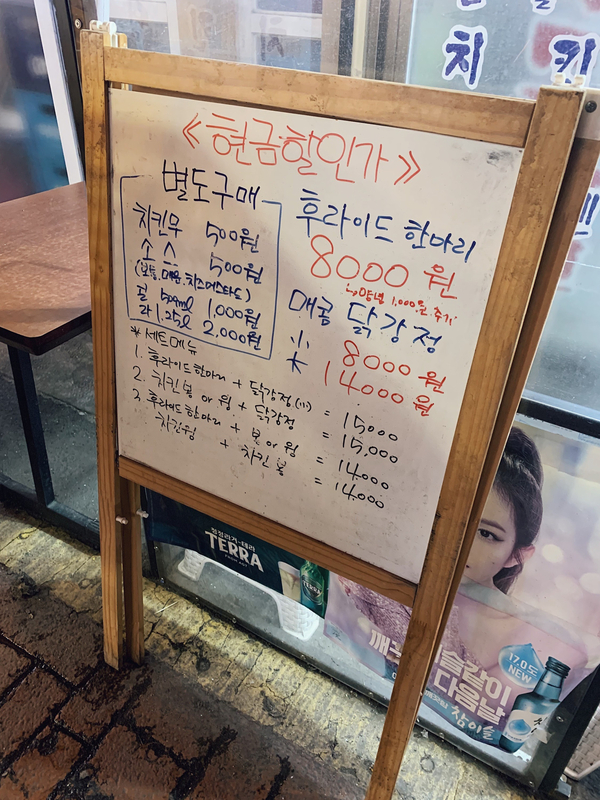 치 킨
<현금할인가>
별도구매
치킨무 500원
소스 500원
(보통, 매운, 치즈머스타드)
콜 500ml 1,000원
라 1.25l 2,000원
후라이드 한마리
8000원
↳양념 1,000원 추가
매콤 닭강정
小 8000원
大 14000원
* 세트메뉴
1. 후라이드한마리 + 닭강정(小) = 15000
2. 치킨봉 or 윙 + 닭강정 = 15,000
3. 후라이드한마리 + 봉 or 윙 = 14,000
치킨윙 + 치킨봉 = 14,000
청정라거-테라
TERRA
이슬같이
다음날
17.0도
NEW
참이슬